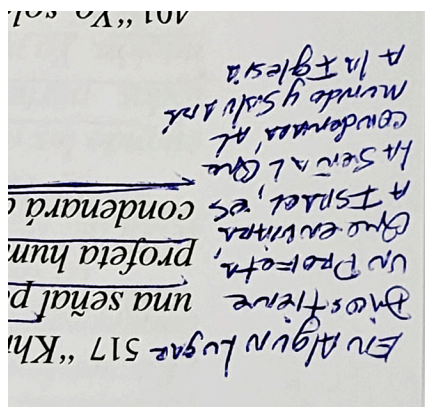 En Algun Lugar - 517 “Khi
Dios tiene una señal p
un Profeta, profeta hum
Que enviara
A Israel, es condenará
La Señal Que
condenara, Al
mundo y Salvara
A la Iglesia
401 “Yo solo